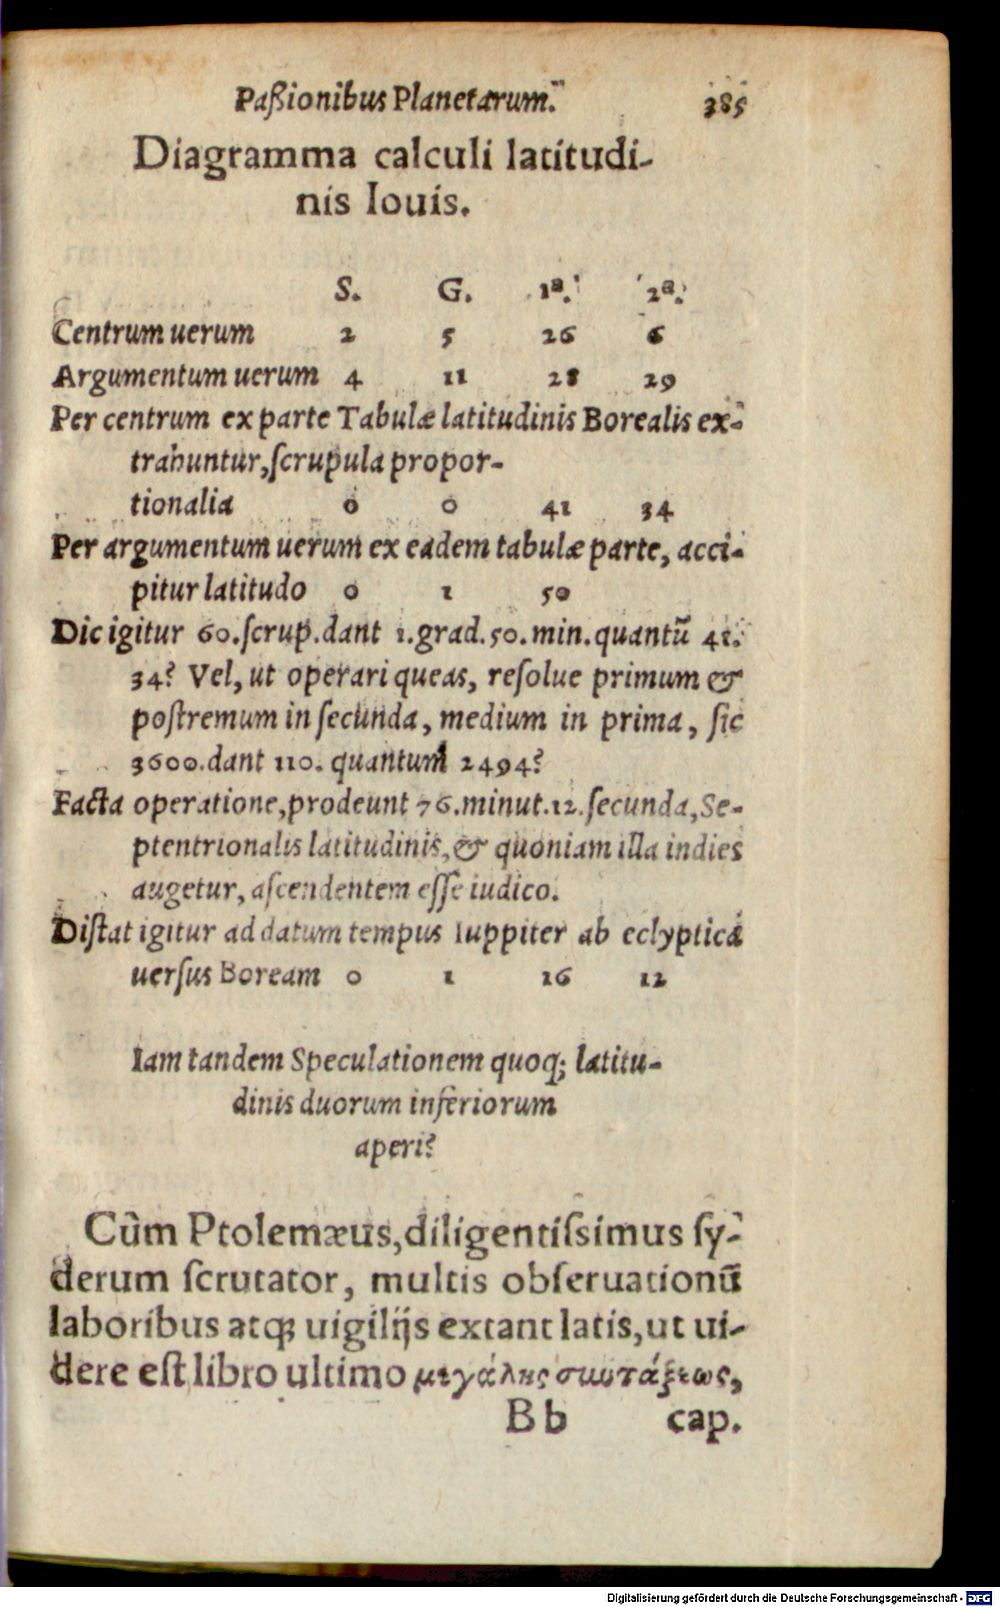 Paßionibus Planetarum. 385
Diagramma calculi latitudi-
nis Iouis.
S. G. 1ª. 2ª.
Centrum uerum 2 5 26 6
Argumentum uerum 4 11 28 29
Per centrum ex parte Tabulæ latitudinis Borealis ex-
trahuntur, ſcrupula propor-
tionalia 0 0 41 34
Per argumentum uerum ex eadem tabulæ parte, acci-
pitur latitudo 0 1 50
Dic igitur 60. ſcrup. dant 1. grad. 50. min. quantũ 41.
34? Vel, ut operari queas, reſolue primum &
poſtremum in ſecunda, medium in prima, ſic
3600. dant 110. quantum 2494?
Facta operatione, prodeunt 76. minut. 12. ſecunda, Se-
ptentrionalis latitudinis, & quoniam illa indies
augetur, aſcendentem eſſe iudico.
Diſtat igitur ad datum tempus Iuppiter ab eclyptica
uerſus Boream 0 1 16 12
Iam tandem Speculationem quoq; latitu-
dinis duorum inferiorum
aperi?
Cùm Ptolemæus, diligentiſsimus ſy-
derum ſcrutator, multis obſeruationũ
laboribus atq; uigilijs extant latis, ut ui-
dere eſt libro ultimo μεγάλης συντάξεως,
B b cap.
Digitalisierung gefördert durch die Deutsche Forschungsgemeinschaft - DFG